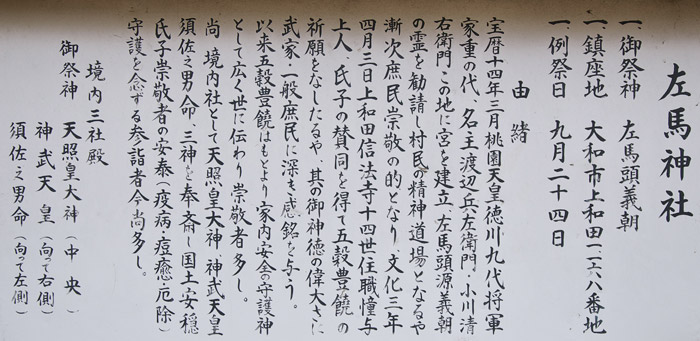 左馬神社
一、御祭神 左馬頭義朝
一、鎮座地 大和市上和田一一六八番地
一、例祭日 九月二十四日
由緒
宝暦十四年三月桃園天皇徳川九代将軍
家重の代、名主渡辺兵左衛門・小川清
右衛門この地に宮を建立、左馬頭源義朝
の霊を勧請し村民の精神道場となるや
漸次庶民崇敬の的となり、文化三年
四月三日上和田信法寺十四世住職憧与
上人、氏子の賛同を得て五穀豊饒の
祈願をなしたるや、其の御神徳の偉大さに
武家・一般庶民に深き感銘を与う。
以来五穀豊饒はもとより家内安全の守護神
として広く世に伝わり崇敬者多し。
尚、境内社として天照皇大神、神武天皇
須佐之男命、三神を奉斎し国土安穏
氏子崇敬者の安泰（疫病・痘瘡・厄除）
守護を念ずる参詣者今尚多し。
境内三社殿
御祭神 天照皇大神（中央）
神武天皇（向って右側）
須佐之男命（向って左側）